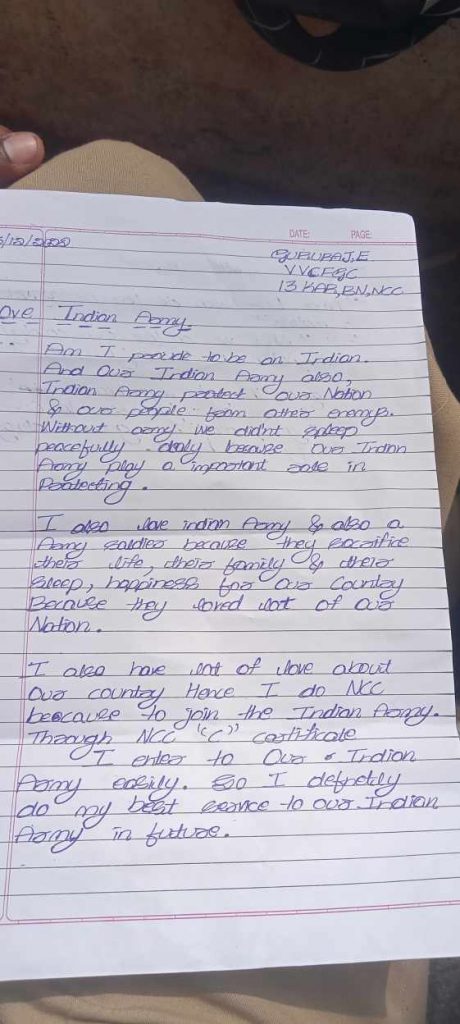 DATE: PAGE:
/12/2020
GURURAJ.E
VVCFGC
13 KAR,BN,NCC
ove Indian Army
Am I proude to be an Indian.
And Our Indian Army also,
Indian Army protect our Nation
& our people from other enemys.
Without army we didn't sleep
peacefully daly because Our Indian
Army play a important role in
Protecting.
I also love indian Army & also a
Army soldier because they sacrifice
their life, their family & their
sleep, happiness for Our Country
Because they loved lot of our
Nation.
I also have lot of love about
Our country Hence I do NCC
beacause to join the Indian Army.
Through NCC "C" certificate
I enter to Our Indian
Army easily. So I defnetly
do my best service to our Indian
Army in future.